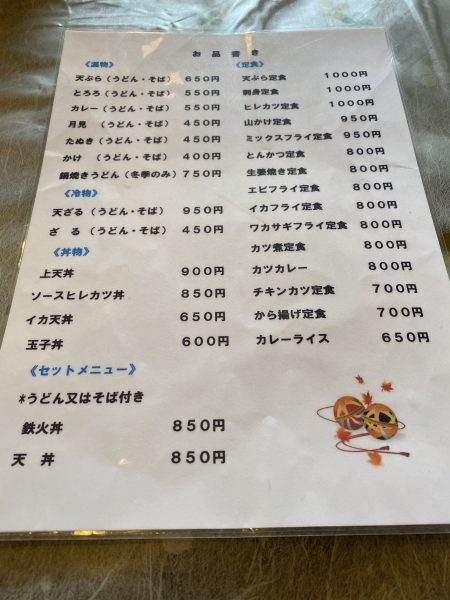 お品書き
《温物》
天ぷら（うどん・そば） 650円
とろろ（うどん・そば） 550円
カレー（うどん・そば） 550円
月見 （うどん・そば） 450円
たぬき（うどん・そば） 450円
かけ （うどん・そば） 400円
鍋焼きうどん（冬季のみ） 750円
《冷物》
天ざる（うどん・そば） 950円
ざ る（うどん・そば） 450円
《丼物》
上天丼 900円
ソースヒレカツ丼 850円
イカ天丼 650円
玉子丼 600円
《セットメニュー》
*うどん又はそば付き
鉄火丼 850円
天 丼 850円
《定食》
天ぷら定食 1000円
刺身定食 1000円
ヒレカツ定食 1000円
山かけ定食 950円
ミックスフライ定食 950円
とんかつ定食 800円
生姜焼き定食 800円
エビフライ定食 800円
イカフライ定食 800円
ワカサギフライ定食 800円
カツ煮定食 800円
カツカレー 800円
チキンカツ定食 700円
から揚げ定食 700円
カレーライス 650円